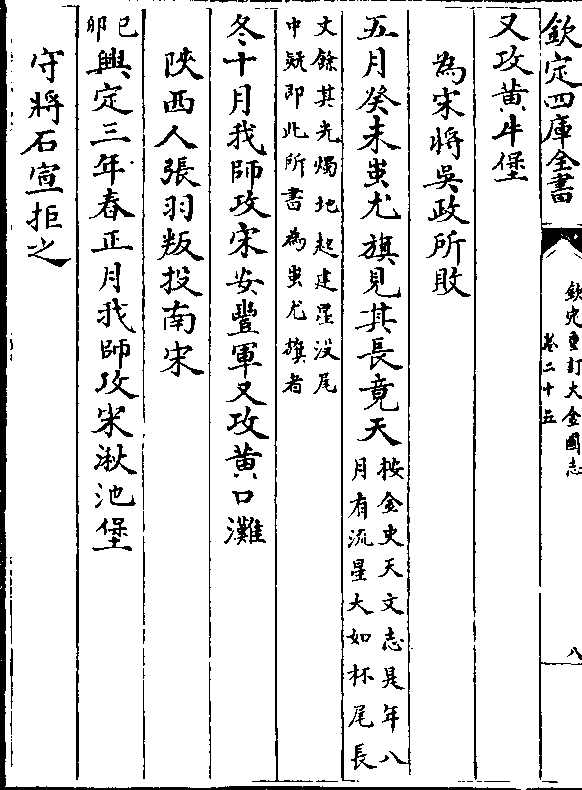 欽定四庫全書
欽定重訂大金國志
卷二十五
八
又攻黄牛堡
為宋將吳政所敗
五月癸未蚩尤旗見其長竟天按金史天文志是年八
月有流星大如杯尾長
丈餘其光燭地起建星沒尾
中疑即此所書為蚩尤旗者
冬十月我師攻宋安豐軍又攻黄口灘
陜西人張羽叛投南宋
己卯興定三年春正月我師攻宋湫池堡
守將石宣拒之